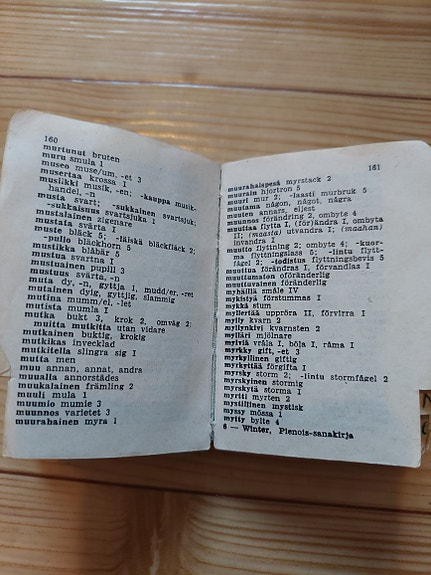 160
murtunut bruten
muru smula 1
museo muse/um, -et 3
musertaa krossa I
musiikki musik, -en; -kauppa musik-
handel, -n
musta svart; -sukkainen svartsjuk;
-sukkaisuus svartsjuka 1
mustalainen zigenare
mustata svärta I
muste bläck 5; -läiskä bläckfläck 2;
-pullo bläckhorn 5
mustikka blåbär 5
mustua svartna I
mustuainen pupill 3
mustuus svärta, -n
muta dy, -n, gyttja 1, mudd/er, -ret
mutainen dyig, gyttjig, slammig
mutina mumm/el, -let
mutista mumla I
mutka bukt 3, krok 2, omväg 2;
muitta mutkitta utan vidare
mutkainen buktig, krokig
mutkikas invecklad
mutkitella slingra sig I
mutta men
muu annan, annat, andra
muualta annorstädes
muukalainen främling 2
muuli mula 1
muumio mumie 3
muunnos varietet 3
muurahainen myra 1
161
muurahaispesä myrstack 2
muurain hjortron 5
muuri mur 2; -laasti murbruk 5
muutama någon, något, några
muuten annars, eljest
muutos förändring 2, ombyte 4
muuttaa flytta I, (för)ändra I, ombyta
II; (maasta) utvandra I; (maahan)
invandra I
muutto flyttning 2; ombyte 4; -kuor-
ma flyttningslass 5; -lintu flytt-
fågel 2; -todistus flyttningsbevis 5
muuttua förändras I, förvandlas I
muuttumaton oföränderlig
muuttuvainen föränderlig
myhäillä småle IV
mykistyä förstummas I
mykkä stum
myllertää uppröra II, förvirra I
mylly kvarn 2
myllynkivi kvarnsten 2
mylläri mjölnare
mylviä vråla I, böla I, råma I
myrkky gift, -et 3
myrkyllinen giftig
myrkyttää förgifta I
myrsky storm 2; -lintu stormfågel 2
myrskyinen stormig
myrskytä storma I
myrtti myrten 2
mystillinen mystisk
myssy mössa 1
myyty bylte 4
6 — Winter, Pienois-sanakirja